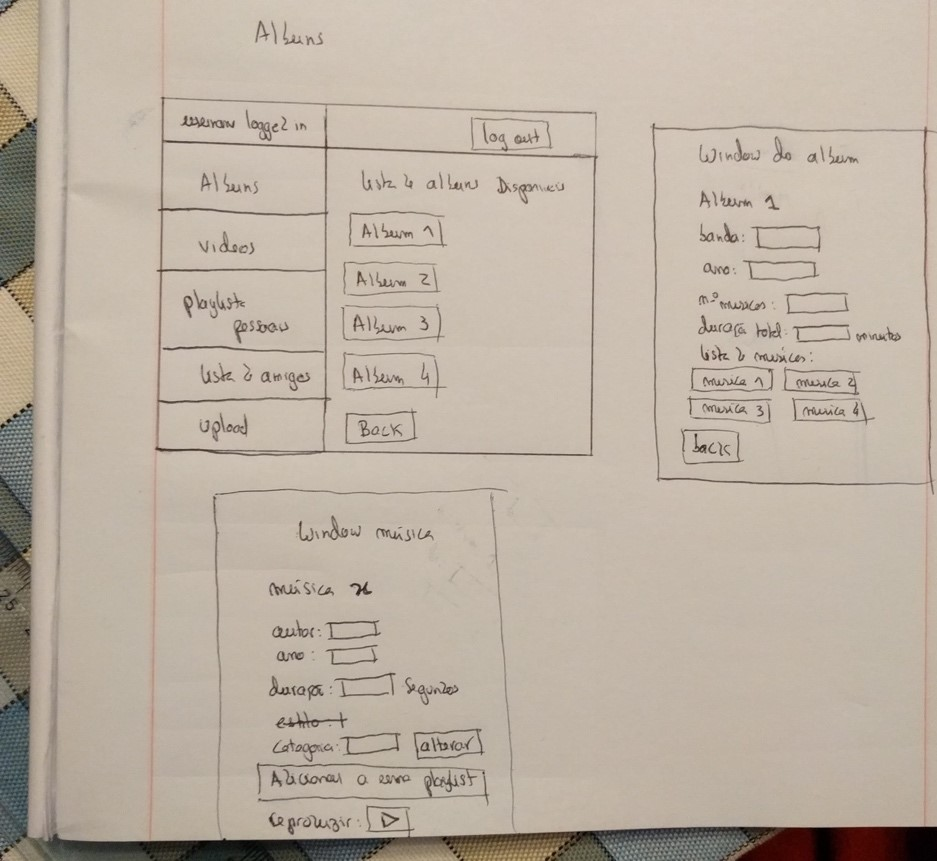 Albuns
username logged in
log out
Albuns
videos
playlists
pessoais
lista de amigos
upload
lista de albuns Disponiveis
Album 1
Album 2
Album 3
Album 4
Back
Window do album
Album 1
banda:
ano:
nº musicas:
duração total: minutos
lista de musicas:
musica 1 musica 2
musica 3 musica 4
back
Window música
música x
autor:
ano:
duração: Segundos
estilo:
Categoria: alterar
Adicionar a uma playlist
reproduzir:
25